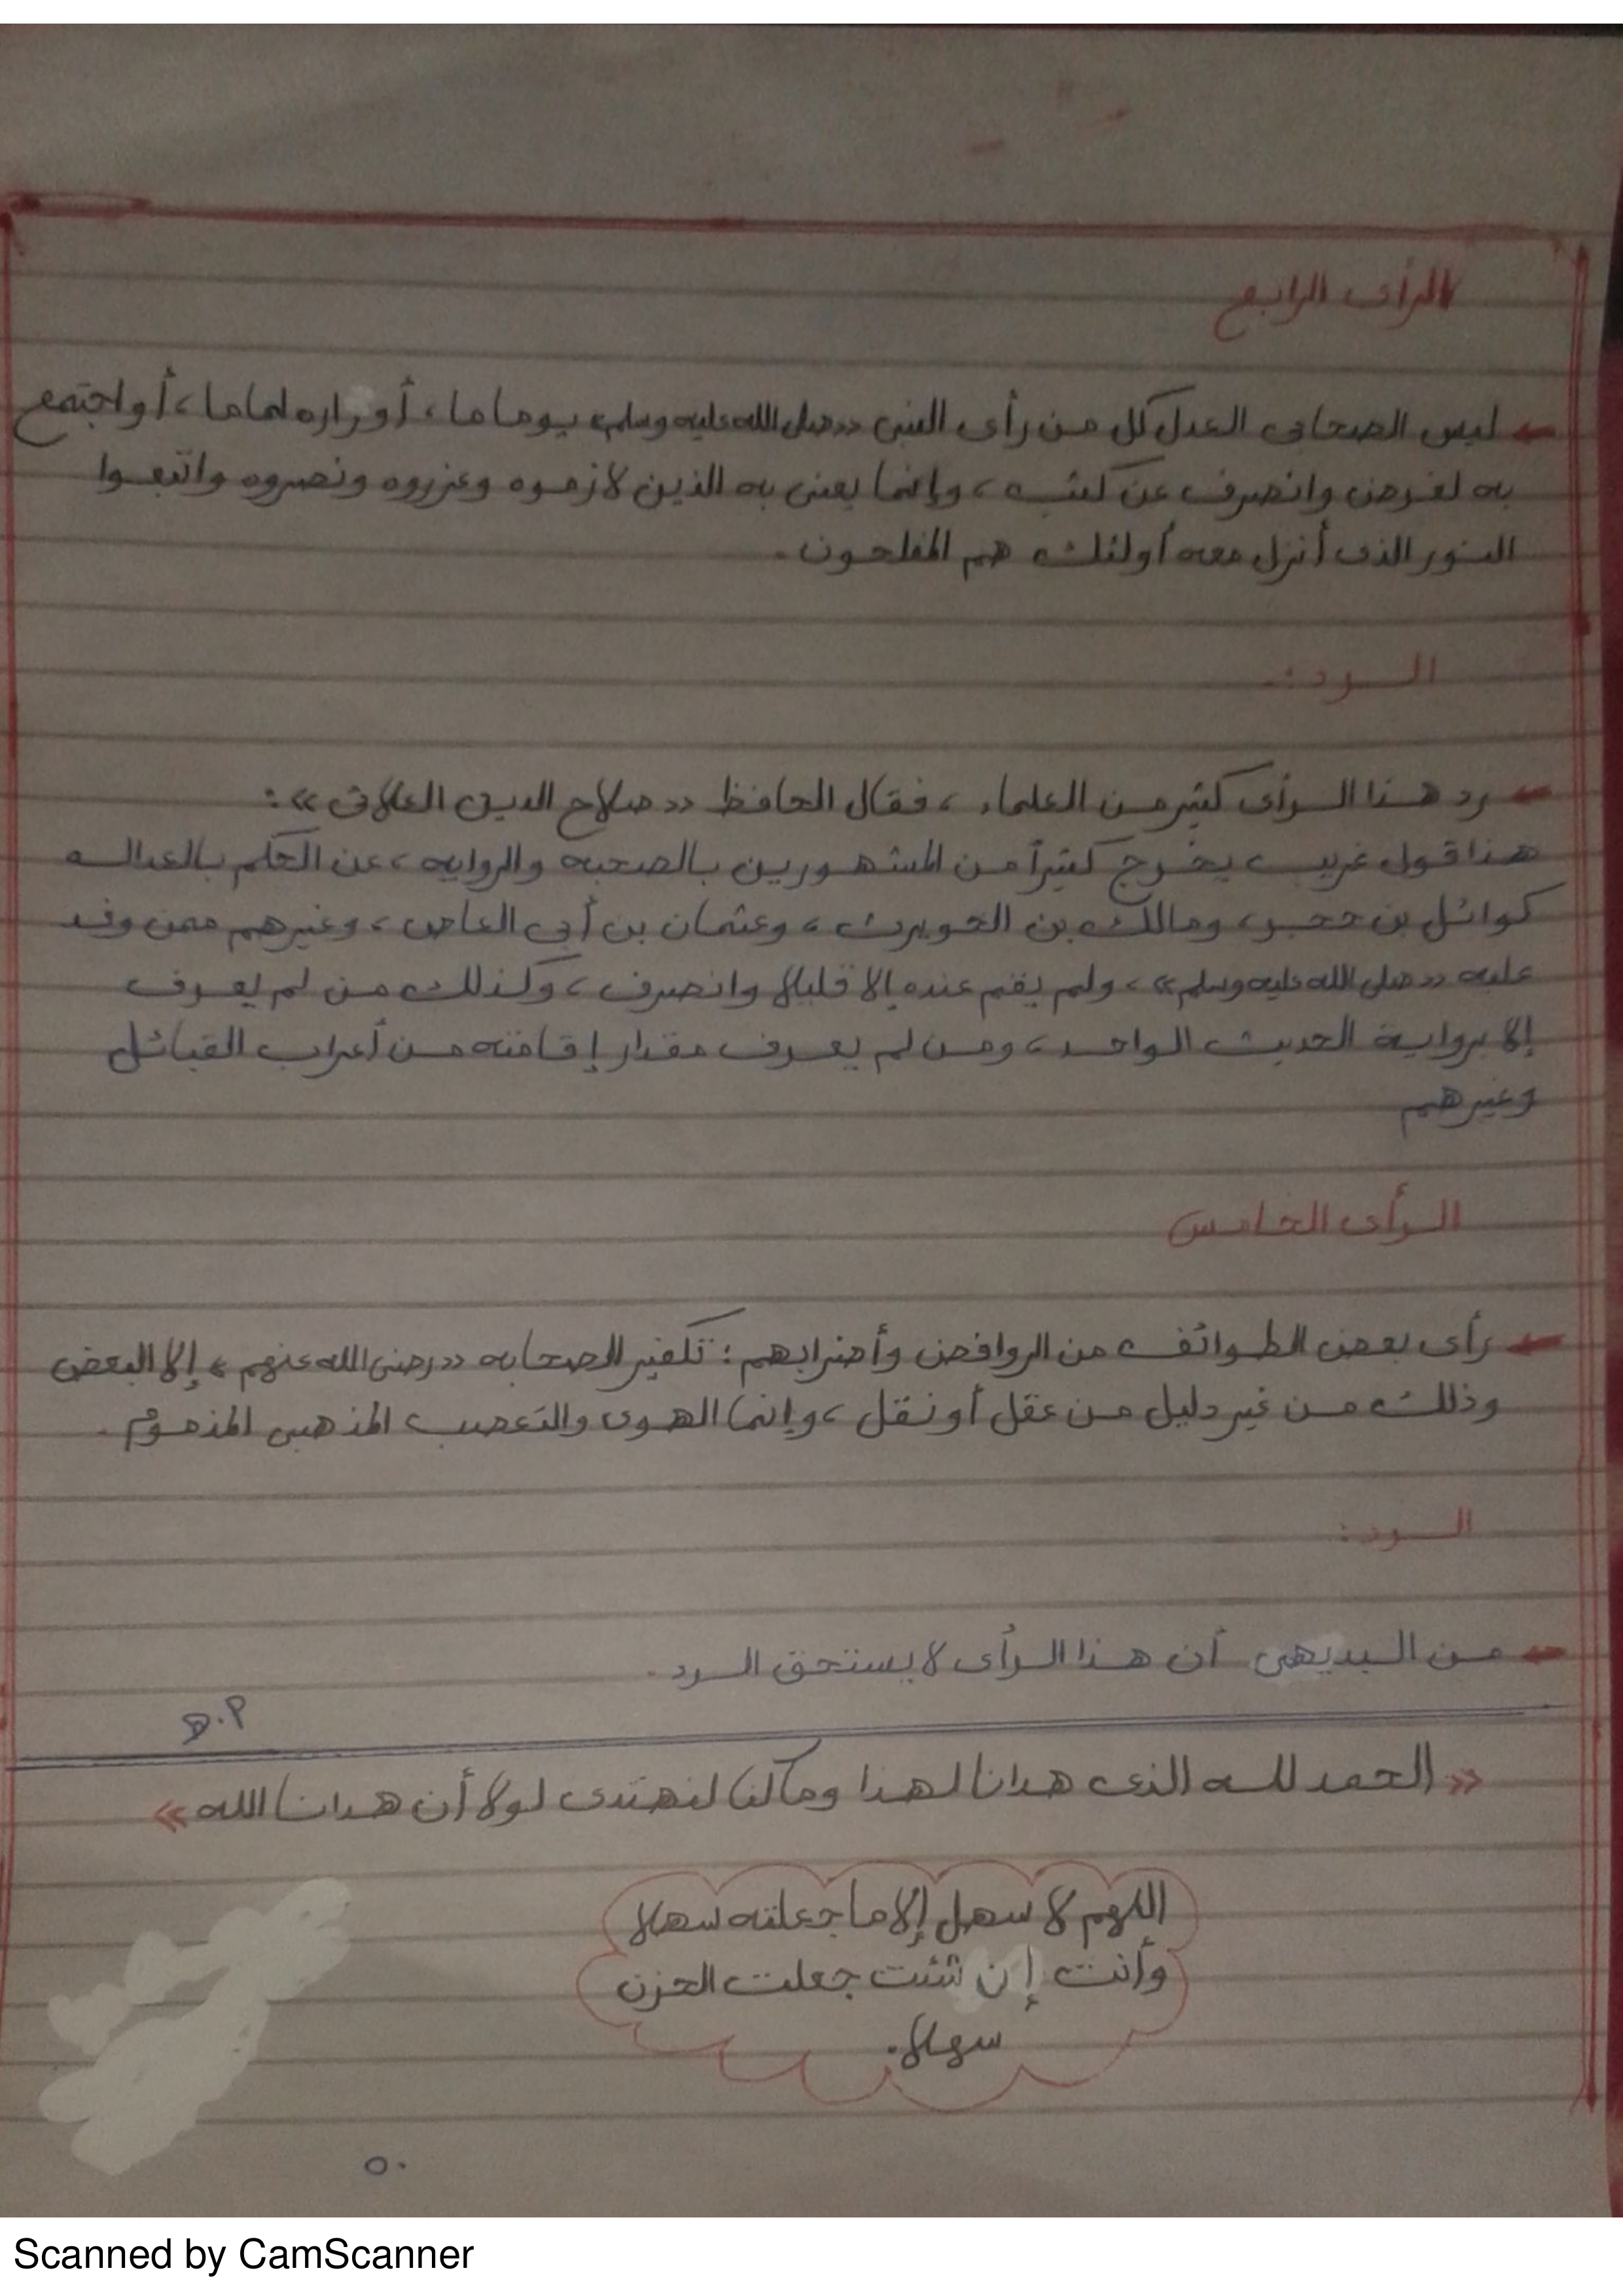 الرأى الرابع
ليس الصحابى العدل كل من رأى النبى «صلى الله عليه وسلم» يوما ما، أو زاره لماما، أو اجتمع
به لغرض وانصرف عن كثب، وإنما يعنى به الذين لازموه وعزروه ونصروه واتبعوا
النور الذى أنزل معه أولئك هم المفلحون.
الرد:-
رد هذا الرأى كثير من العلماء، فقال الحافظ «صلاح الدين العلائى»:
هذا قول غريب يخرج كثيراً من المشهورين بالصحبه والروايه، عن الحكم بالعداله
كوائل بن حجر، ومالك بن الحويرث، وعثمان بن أبى العاص، وغيرهم ممن وفد
عليه «صلى الله عليه وسلم»، ولم يقم عنده إلا قليلا وانصرف، وكذلك من لم يعرف
إلا برواية الحديث الواحد، ومن لم يعرف مقدار إقامته من أعراب القبائل
وغيرهم
الرأى الخامس
رأى بعض الطوائف من الروافض وأضرابهم: تكفير الصحابه «رضى الله عنهم» إلا البعض
وذلك من غير دليل من عقل أو نقل، وإنما الهوى والتعصب المذهبى المذموم.
الرد:
من البديهى أن هذا الرأى لا يستحق الرد.
«الحمد لله الذى هدانا لهذا وما كنا لنهتدى لولا أن هدانا الله»
اللهم لا سهل إلا ما جعلته سهلا
وأنت إن شئت جعلت الحزن
سهلا.
٥٠
Scanned by CamScanner